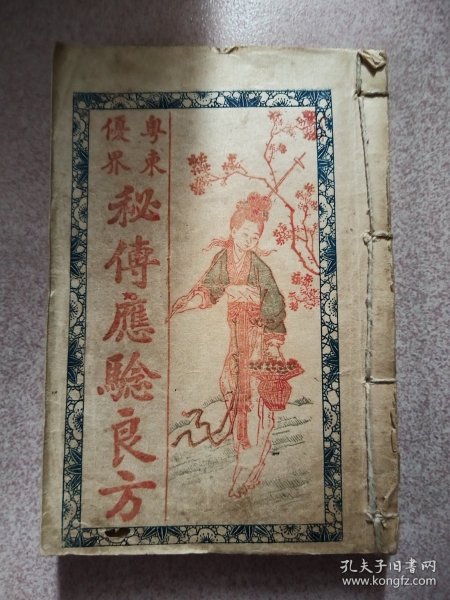 粵東
優界
秘傳應驗良方
孔夫子旧书网
www.kongfz.com